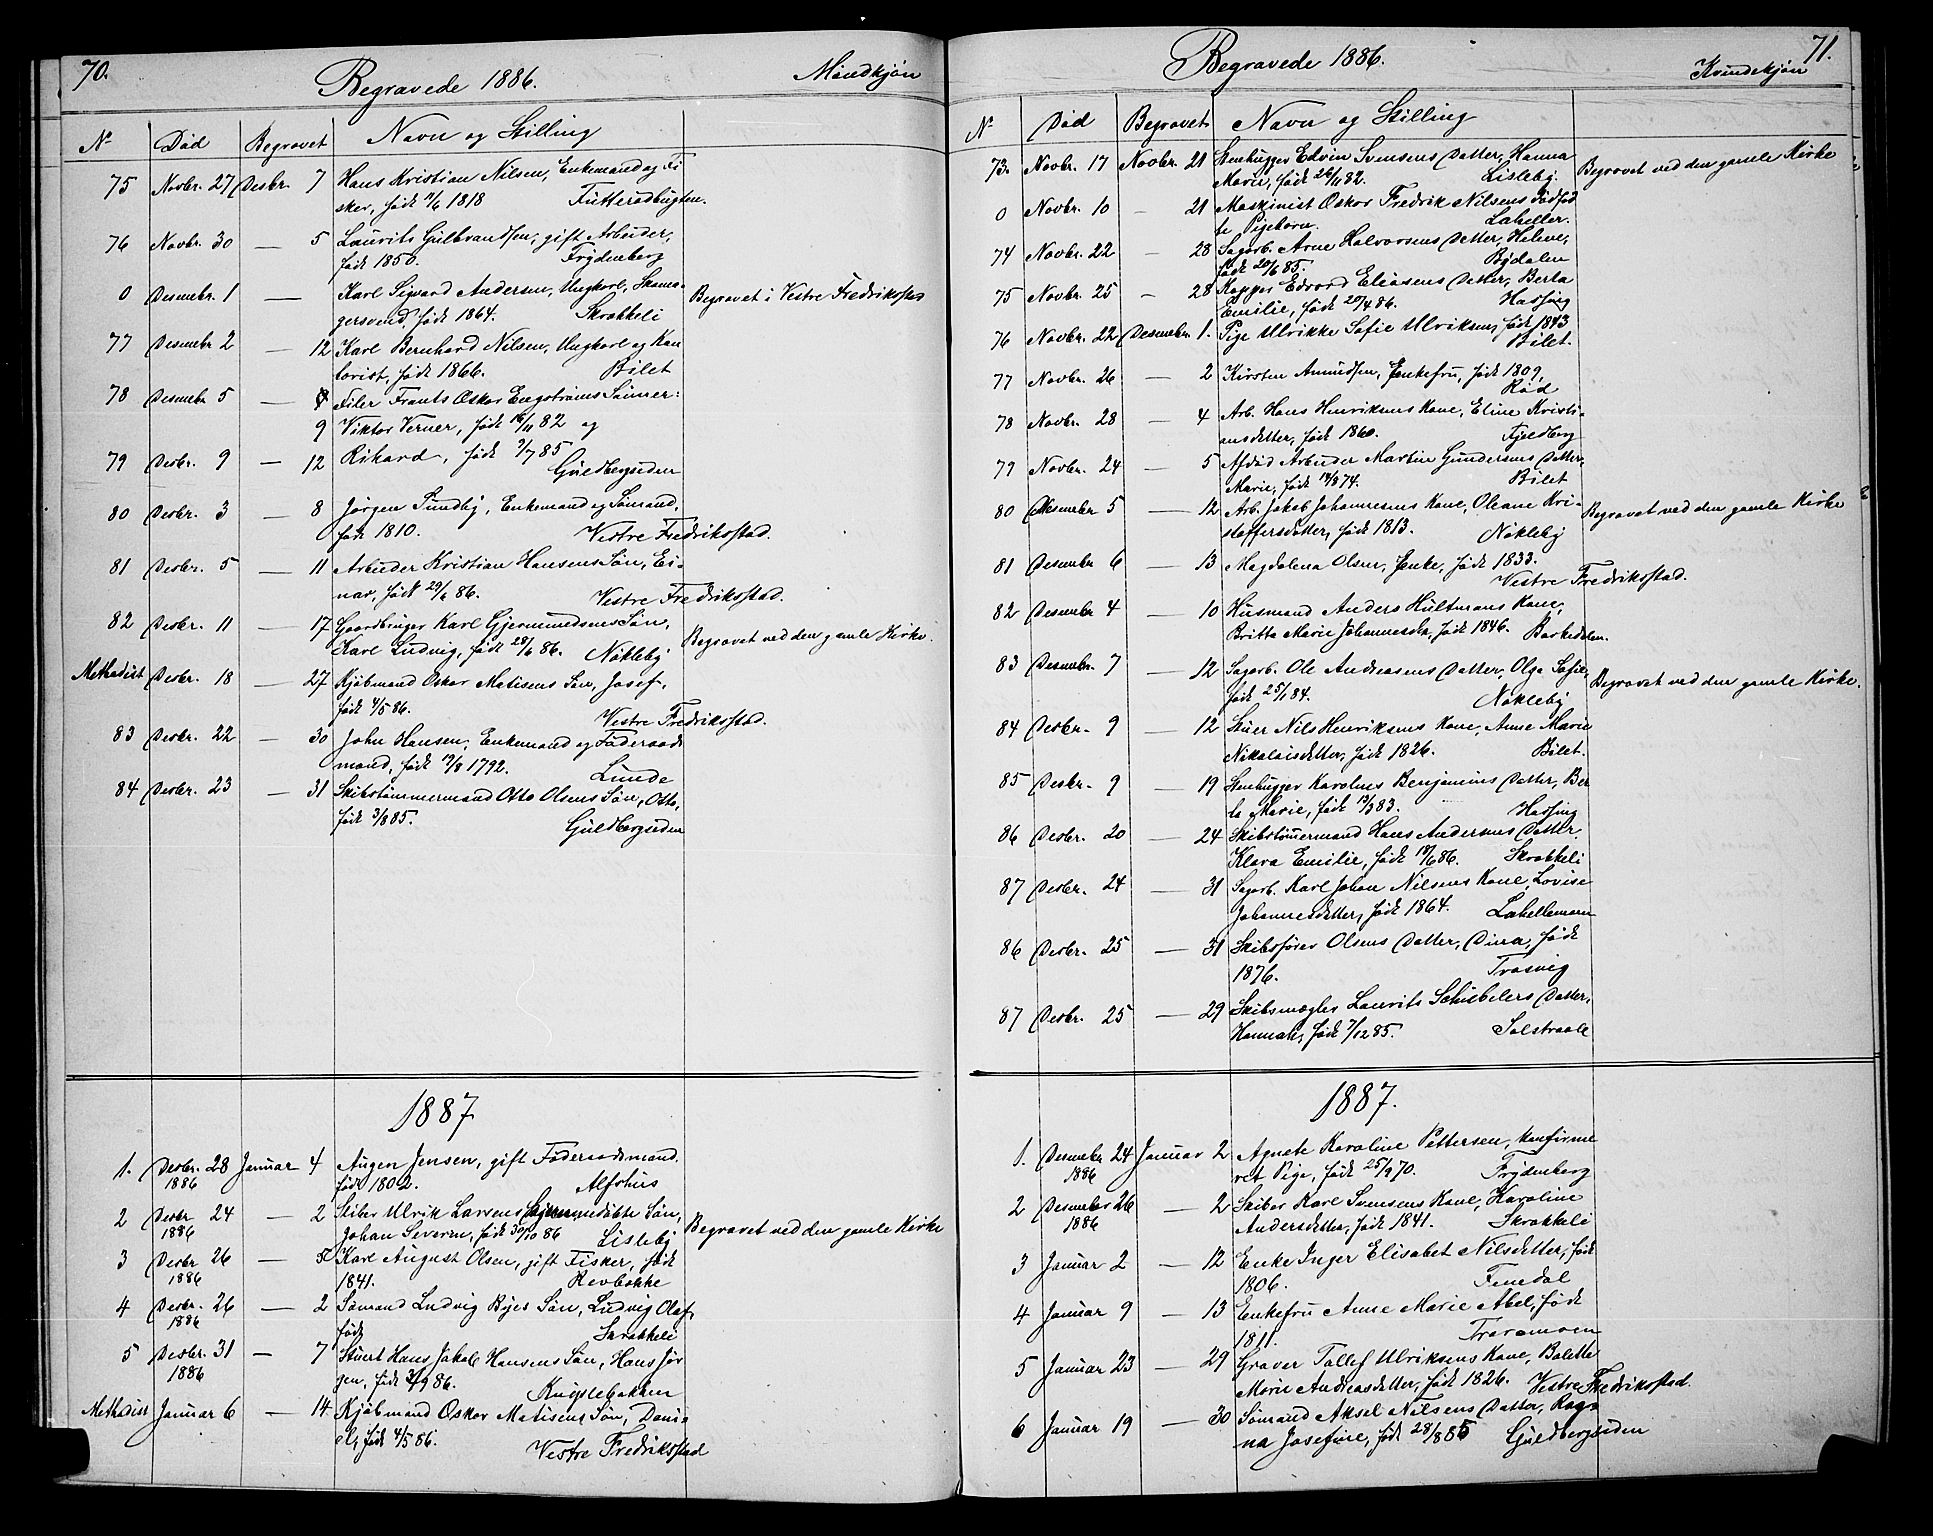 70.
Begravede 1886.
Mandkjøn
No Død Begravet Navn og Stilling
75 Novbr. 27 Desbr. 7 Hans Kristian Nilsen, Enkemand og Fi
sker, født 1818
76 Novbr. 30 — 5 Laurits Gulbrandsen, gift Arbeider,
født 1850. Frydenberg
0 Desembr. 1 — Karl Sigvard Andersen, Ungkarl, Skoma-
gersvend, født 1864. Skrokkeli Begravet i Vestre Fredriksstad
77 Desembr 2 — 12 Karl Bernhard Nilsen, Ungkarl og Kon
torist, født 1866. Bilet
78 Desembr 5 — Filer Frants Oskar Engstrøms Sønner:
9 Viktor Verner, født 16/11 82 og
79 Desbr. 9 — 12 Rikard, født 85
Guldbergsiden
80 Desbr. 3 — 8 Jørgen Sundby, Enkemand og Sømand,
født 1810. Vestre Fredriksstad.
81 Desbr. 5 — 11 Arbeider Kristian Hansens Søn, Ei-
nar, født 29/6 86. Vestre Fredriksstad.
82 Desbr. 11 — 17 Gaardbruger Karl Gjermundsens Søn,
Karl Ludvig, født 28/6 86. Nøkleby Begravet ved den gamle Kirke.
Methodist Desbr. 18 — 27 Kjøbmand Oskar Matisens Søn, Josef,
født 4/5 86. Vestre Fredriksstad.
83 Desbr. 22 — 30 John Hansen, Enkemand og Føderaads
mand, født 1792. Lunde
84 Desbr. 23 — 31 Skibstømmermand Otto Olsens Søn, Otto,
født 3/8 85. Guldbergsiden
1887
1. Desbr. 28 Januar 4 Augen Jensen, gift Føderaadsmand.
1886 født 1802. Alfshus
2 Desbr 24 — 2 Stiber Ulrik Larsens Søn,
1886 Johan Severin, født 30/10 86 Lisleby Begravet ved den gamle Kirke
3 Desbr 26 — 5 Karl August Olsen, gift Fisker, født
1886 1841. Revbakke
4 Desbr. 26 — 2 Sømand Ludvig Byes Søn, Ludvig Olaf,
1886 født Skrokkeli
5 Desbr. 31 — 7 Stuert Hans Jakob Hansens Søn, Hans Jør
1886 gen, født 9 86.
Methodist Januar 6 — 14 Kjøbmand Oskar Matisens Søn, Dani-
el, født 4/5 86. Vestre Fredriksstad
71.
Begravede 1886.
Kvindekjøn
No Død Begravet Navn og Stilling
73. Novbr. 17 Novbr. 21 Stenhugger Edvin Svensens Datter, Hanna
Marie, født 82. Lisleby. Begravet ved den gamle Kirke
0 Novbr. 10 — 21 Maskinist Oskar Fredrik Nilsens dødfød
te Pigebarn. Labeller.
74 Novbr. 22 — 28 Sagarb. Arne Halvorsens Datter, Helene,
født 20/6 85. Bydalen
75 Novbr. 25 — 28 Kopper Edvard Eliasens Datter, Berta
Emilie, født 20/4 86. Hassing
76 Novbr. 22 Desember 1. Pige Ulrikke Sofie Ulriksen, født 1843
Bilet.
77 Novbr. 26 — 2 Kirsten Amundsen, Enkefru, født 1809,
Rød
78 Novbr. 28 — 4 Arb. Hans Henriksens Kone, Eline Kristi-
ansdatter, født 1860. Fjeldberg
79 Novbr. 24 — 5 Afdød Arbeider Martin Gundersens Datter,
Marie, født 74. Bilet
80 Desember 5 — 12 Arb. Jakob Johannesens Kone, Oleane Kri-
stoffersdatter, født 1813. Nøkleby Begravet ved den gamle Kirke
81 Desember 6 — 13 Magdalena Olsen, Enke, født 1833.
Vestre Fredriksstad.
82 Desember 4 — 10 Husmand Anders Hultmans Kone,
Britta Marie Johannesdtr, født 1846.
83 Desember. 7 — 12 Sagarb. Ole Andreasens Datter, Olga Sofie,
født 25/1 84. Nøkleby Begravet ved den gamle Kirke.
84 Desbr. 9 — 12 Stuer Nils Henriksens Kone, Anne Marie
Nikolaisdatter, født 1826. Bilet.
85 Desbr. 9 — 19 Stenhugger Karolus Benjamins Datter, Ber
ta Marie, født 83. Hassing
86 Desbr. 20 — 24 Skibstømermand Hans Andersens Datter
Klara Emilie, født 86. Skrokkeli
87 Desbr. 24 — 31 Sagarb. Karl Johan Nilsens Kone, Lovise
Johannesdatter, født 1864. Labellemoen
86 Desbr. 25 — 31 Skibsfører Olsens Datter, Dina, født
1876. Trosvig
87 Desbr. 25 — 29 Skibsmægler Laurits Schübelers Datter,
Hannah, født 7/12 85. Solstraale
1887.
1. Desember 24 Januar 2 Agnete Karoline Pettersen, konfirme
1886 ret Pige, født 25/9 70. Frydenberg
2 Desember 26 — 2 Skibor Karl Svensens Kone, Karoline
1886 Andersdatter, født 1841. Skrokkeli
3 Januar 2 — 12 Enke Inger Elisabet Nilsdatter, født
1806. Finedal
4 Januar 9 — 13 Enkefru Anne Marie Abel, født
1811. Traramoen
5 Januar 23 — 29 Graver Tollef Ulriksens Kone, Bolette
Marie Andreasdatter, født 1826. Vestre Fredriksstad.
6 Januar 19 — 30 Sømand Aksel Nilsens Datter, Rag-
na Josefine, født 28/8 85 Guldbergsiden